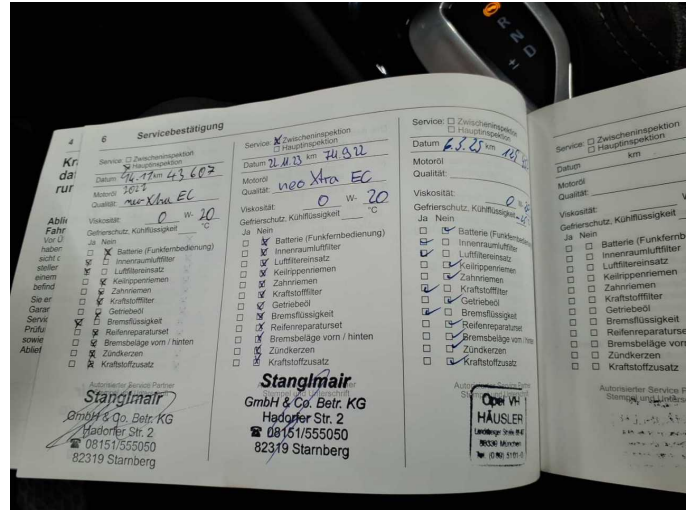 R
N
D
±
4
Kr
da
rur
Abli
Fahr
Vor Ü
haben
sicht
steller
einem
befind
Sie er
Garar
Servic
Prüfu
sowie
Ablief
6 Servicebestätigung
Service: ☐ Zwischeninspektion
☒ Hauptinspektion
Datum 14.11 km 43 607
Motoröl 2022
Qualität: neo Xtra EC
Viskosität: 0 W- 20
Gefrierschutz, Kühlflüssigkeit °C
Ja Nein
☐ ☒ Batterie (Funkfernbedienung)
☒ ☐ Innenraumluftfilter
☒ ☐ Luftfiltereinsatz
☐ ☒ Keilrippenriemen
☐ ☒ Zahnriemen
☐ ☒ Kraftstofffilter
☐ ☒ Getriebeöl
☒ ☐ Bremsflüssigkeit
☐ ☒ Reifenreparaturset
☐ ☒ Bremsbeläge vorn / hinten
☐ ☒ Zündkerzen
☐ ☒ Kraftstoffzusatz
Autorisierter Service Partner
Stanglmair
GmbH & Co. Betr. KG
Hadorfer Str. 2
☎ 08151/555050
82319 Starnberg
Service: ☒ Zwischeninspektion
☐ Hauptinspektion
Datum 21.11.23 km 74.922
Motoröl
Qualität: neo Xtra EC
Viskosität: 0 W- 20
Gefrierschutz, Kühlflüssigkeit °C
Ja Nein
☐ ☒ Batterie (Funkfernbedienung)
☐ ☒ Innenraumluftfilter
☐ ☒ Luftfiltereinsatz
☐ ☒ Keilrippenriemen
☐ ☒ Zahnriemen
☐ ☒ Kraftstofffilter
☐ ☒ Getriebeöl
☐ ☒ Bremsflüssigkeit
☐ ☒ Reifenreparaturset
☐ ☒ Bremsbeläge vorn / hinten
☐ ☒ Zündkerzen
☐ ☒ Kraftstoffzusatz
Autorisierter Service Partner
Stempel und Unterschrift
Stanglmair
GmbH & Co. Betr. KG
Hadorfer Str. 2
☎ 08151/555050
82319 Starnberg
Service: ☐ Zwischeninspektion
☐ Hauptinspektion
Datum 6.3.25 km
Motoröl
Qualität:
Viskosität: 0
Gefrierschutz, Kühlflüssigkeit
Ja Nein
☐ ☒ Batterie (Funkfernbedien
☒ ☐ Innenraumluftfilter
☒ ☐ Luftfiltereinsatz
☐ ☒ Keilrippenriemen
☐ ☒ Zahnriemen
☒ ☐ Kraftstofffilter
☐ ☒ Getriebeöl
☒ ☐ Bremsflüssigkeit
☐ ☒ Reifenreparaturset
☐ ☒ Bremsbeläge vorn /
☐ ☒ Zündkerzen
☐ ☒ Kraftstoffzusatz
Autorisierter Service Partner
Stempel und Unterschrift
Opel VH
HÄUSLER
80339 München
Service: ☐ Zwischeninspektion
☐ Hauptinspektion
Datum km
Motoröl
Qualität:
Viskosität:
Gefrierschutz, Kühlflüssigkeit
Ja Nein
☐ ☐ Batterie (Funkfernb
☐ ☐ Innenraumluftfilter
☐ ☐ Luftfiltereinsatz
☐ ☐ Keilrippenriemen
☐ ☐ Zahnriemen
☐ ☐ Kraftstofffilter
☐ ☐ Getriebeöl
☐ ☐ Bremsflüssigkeit
☐ ☐ Reifenreparaturse
☐ ☐ Bremsbeläge vorn
☐ ☐ Zündkerzen
☐ ☐ Kraftstoffzusatz
Autorisierter Service P